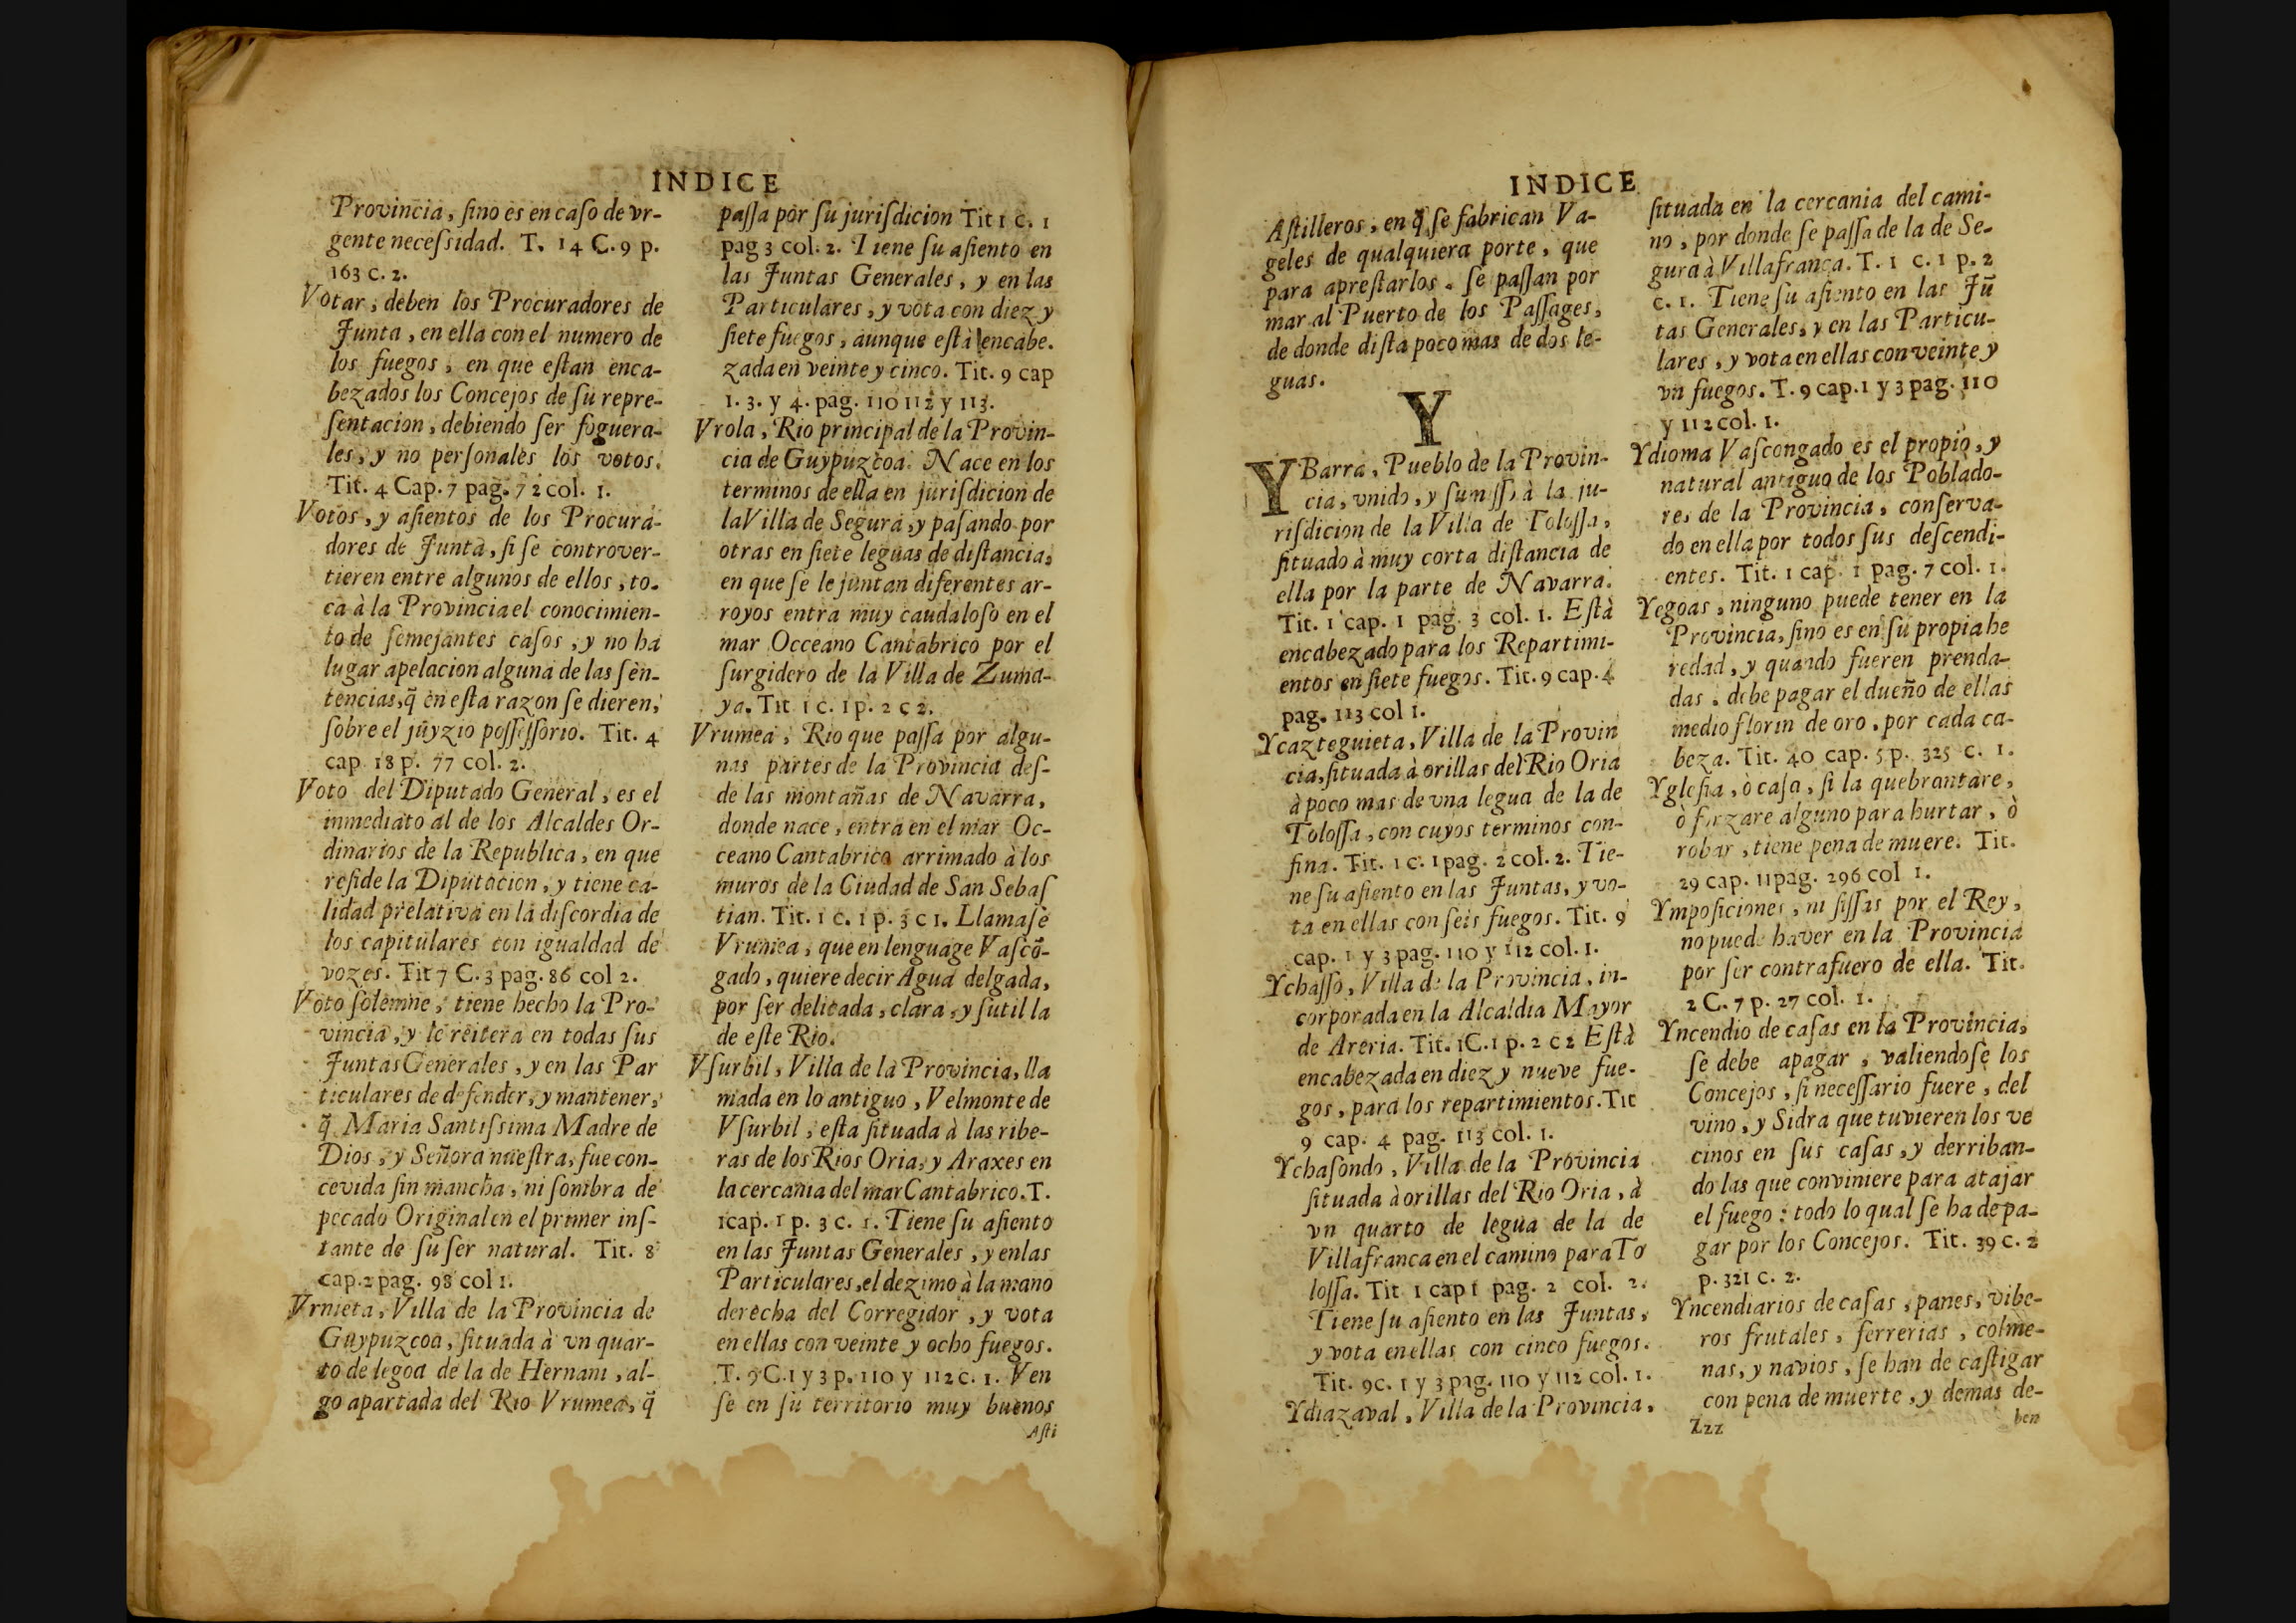 INDICE
Provincia, sino es en caso de vr-
gente necessidad. T. 14 C. 9 p.
163 c. 2.
Votar, deben los Procuradores de
Junta, en ella con el numero de
los fuegos, en que estan enca-
bezados los Concejos de su repre-
sentacion, debiendo ser foguera-
les, y no personales los votos.
Tit. 4 Cap. 7 pag. 72 col. 1.
Votos, y asientos de los Procura-
dores de Junta, si se controver-
tieren entre algunos de ellos, to-
ca à la Provincia el conocimien-
to de semejantes casos, y no ha
lugar apelacion alguna de las sen-
tencias, q̃ en esta razon se dieren,
sobre el juyzio possessorio. Tit. 4
cap. 18 p. 77 col. 2.
Voto del Diputado General, es el
inmediato al de los Alcaldes Or-
dinarios de la Republica, en que
reside la Diputacion, y tiene ca-
lidad prelativa en la discordia de
los capitulares con igualdad de
vozes. Tit 7 C. 3 pag. 86 col 2.
Voto solemne, tiene hecho la Pro-
vincia, y le reitera en todas sus
Juntas Generales, y en las Par
ticulares de defender, y mantener,
q̃ Maria Santissima Madre de
Dios, y Señora nuestra, fue con-
cevida sin mancha, ni sombra de
pecado Original en el primer ins-
tante de su ser natural. Tit. 8
cap. 2 pag. 98 col 1.
Vrnieta, Villa de la Provincia de
Guypuzcoa, situada à vn quar-
to de legoa de la de Hernani, al-
go apartada del Rio Vrumea, q̃
passa por su jurisdicion Tit 1 c. 1
pag 3 col. 2. Tiene su asiento en
las Juntas Generales, y en las
Particulares, y vota con diez y
siete fuegos, aunque està encabe.
zada en veinte y cinco. Tit. 9 cap
1. 3. y 4. pag. 110 112 y 113.
Vrola, Rio principal de la Provin-
cia de Guypuzcoa. Nace en los
terminos de ella en jurisdicion de
la Villa de Segura, y pasando por
otras en siete leguas de distancia,
en que se le juntan diferentes ar-
royos entra muy caudaloso en el
mar Occeano Cantabrico por el
surgidero de la Villa de Zuma-
ya. Tit 1 c. 1 p. 2 c 2.
Vrumea, Rio que passa por algu-
nas partes de la Provincia des-
de las montañas de Navarra,
donde nace, entra en el mar Oc-
ceano Cantabrico arrimado à los
muros de la Ciudad de San Sebas
tian. Tit. 1 c. 1 p. 3 c 1. Llamase
Vrumea, que en lenguage Vascõ-
gado, quiere decir Agua delgada,
por ser delicada, clara, y sutil la
de este Rio.
Vsurbil, Villa de la Provincia, lla
mada en lo antiguo, Velmonte de
Vsurbil, esta situada à las ribe-
ras de los Rios Oria, y Araxes en
la cercania del mar Cantabrico. T.
1 cap. 1 p. 3 c. 1. Tiene su asiento
en las Juntas Generales, y en las
Particulares, el dezimo à la mano
derecha del Corregidor, y vota
en ellas con veinte y ocho fuegos.
T. 9 C. 1 y 3 p. 110 y 112 c. 1. Ven
se en su territorio muy buenos
Asti
INDICE
Astilleros, en q̃ se fabrican Va-
geles de qualquiera porte, que
para aprestarlos. se passan por
mar al Puerto de los Passages,
de donde dista poco mas de dos le-
guas.
Y
YBarra, Pueblo de la Provin-
cia, vnido, y sumisso à la ju-
risdicion de la Villa de Tolossa,
situado à muy corta distancia de
ella por la parte de Navarra.
Tit. 1 cap. 1 pag. 3 col. 1. Està
encabezado para los Repartimi-
entos en siete fuegos. Tit. 9 cap. 4
pag. 113 col 1.
Ycazteguieta, Villa de la Provin
cia, situada à orillas del Rio Oria
à poco mas de vna legua de la de
Tolossa, con cuyos terminos con-
fina. Tit. 1 c. 1 pag. 2 col. 2. Tie-
ne su asiento en las Juntas, y vo-
ta en ellas con seis fuegos. Tit. 9
cap. 1 y 3 pag. 110 y 112 col. 1.
Ychasso, Villa de la Provincia, in-
corporada en la Alcaldia Mayor
de Areria. Tit. 1 C. 1 p. 2 c 2 Està
encabezada en diez y nueve fue-
gos, para los repartimientos. Tit
9 cap. 4 pag. 113 col. 1.
Ychasondo, Villa de la Provincia
situada à orillas del Rio Oria, à
vn quarto de legua de la de
Villafranca en el camino para To
lossa. Tit 1 cap 1 pag. 2 col. 2.
Tiene su asiento en las Juntas,
y vota en ellas con cinco fuegos.
Tit. 9 c. 1 y 3 pag. 110 y 112 col. 1.
Ydiazaval, Villa de la Provincia,
situada en la cercania del cami-
no, por donde se passa de la de Se-
gura à Villafranca. T. 1 c. 1 p. 2
c. 1. Tiene su asiento en las Jũ
tas Generales, y en las Particu-
lares, y vota en ellas con veinte y
vn fuegos. T. 9 cap. 1 y 3 pag. 110
y 112 col. 1.
Ydioma Vascongado es el propio, y
natural antiguo de los Poblado-
res de la Provincia, conserva-
do en ella por todos sus descendi-
entes. Tit. 1 cap. 1 pag. 7 col. 1.
Yegoas, ninguno puede tener en la
Provincia, sino es en su propia he
redad, y quando fueren prenda-
das, debe pagar el dueño de ellas
medio florin de oro, por cada ca-
beza. Tit. 40 cap. 5 p. 325 c. 1.
Yglesia, ò casa, si la quebrantare,
ò forzare alguno para hurtar, ò
robar, tiene pena de muere. Tit.
29 cap. 11 pag. 296 col 1.
Ymposiciones, ni sissas por el Rey,
no puede haver en la Provincia
por ser contrafuero de ella. Tit.
2 C. 7 p. 27 col. 1.
Yncendio de casas en la Provincia,
se debe apagar, valiendose los
Concejos, si necessario fuere, del
vino, y Sidra que tuvieren los ve
cinos en sus casas, y derriban-
do las que conviniere para atajar
el fuego: todo lo qual se ha de pa-
gar por los Concejos. Tit. 39 c. 2
p. 321 c. 2.
Yncendiarios de casas, panes, vibe-
ros frutales, ferrerias, colme-
nas, y navios, se han de castigar
con pena de muerte, y demas de-
Zzz
ben